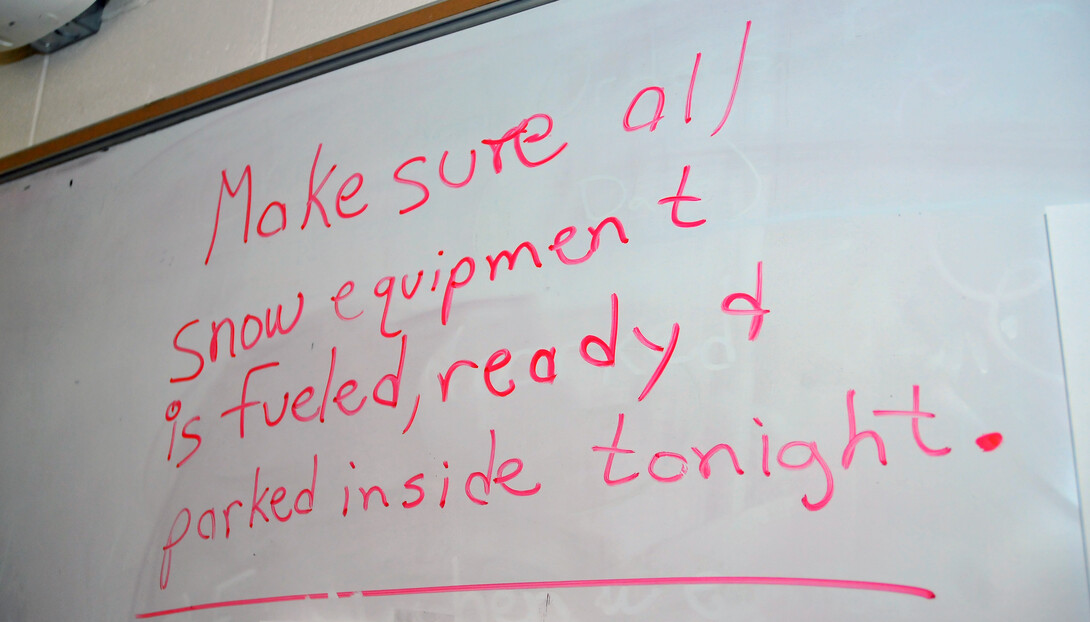 Make sure all
snow equipment
is fueled, ready &
parked inside tonight.